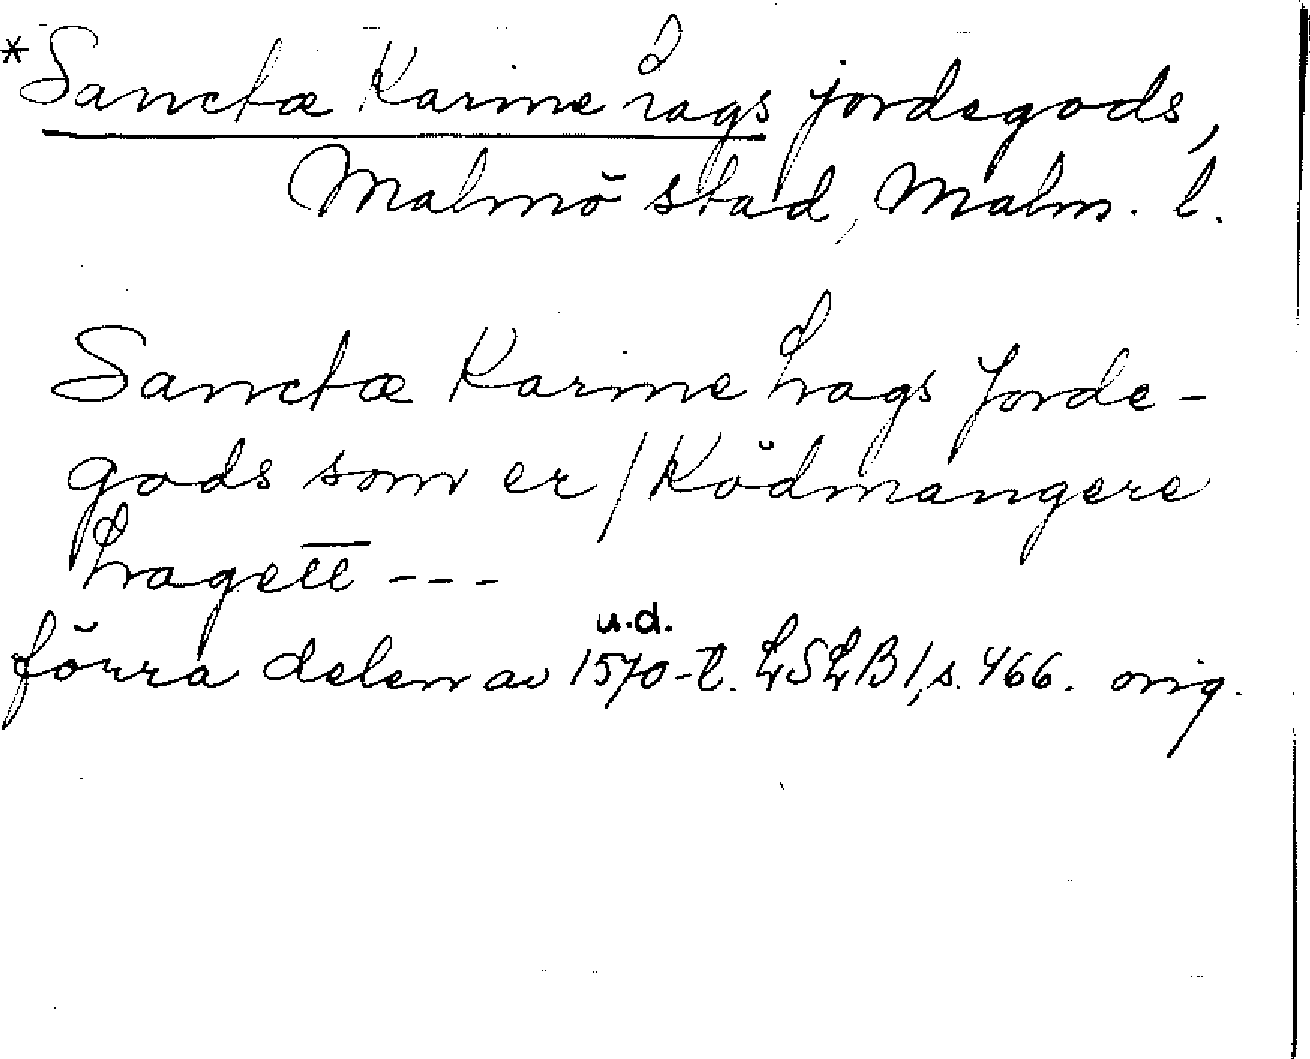 *Sanctæ Karine Lags jordegods,
Malmö stad, Malm. l.
Sanctæ Karine Lags Jorde-
gods som er / Ködmangere
Lagett ---
u.d.
förra delen av 1570-t. LSLB 1, s. 466. orig.